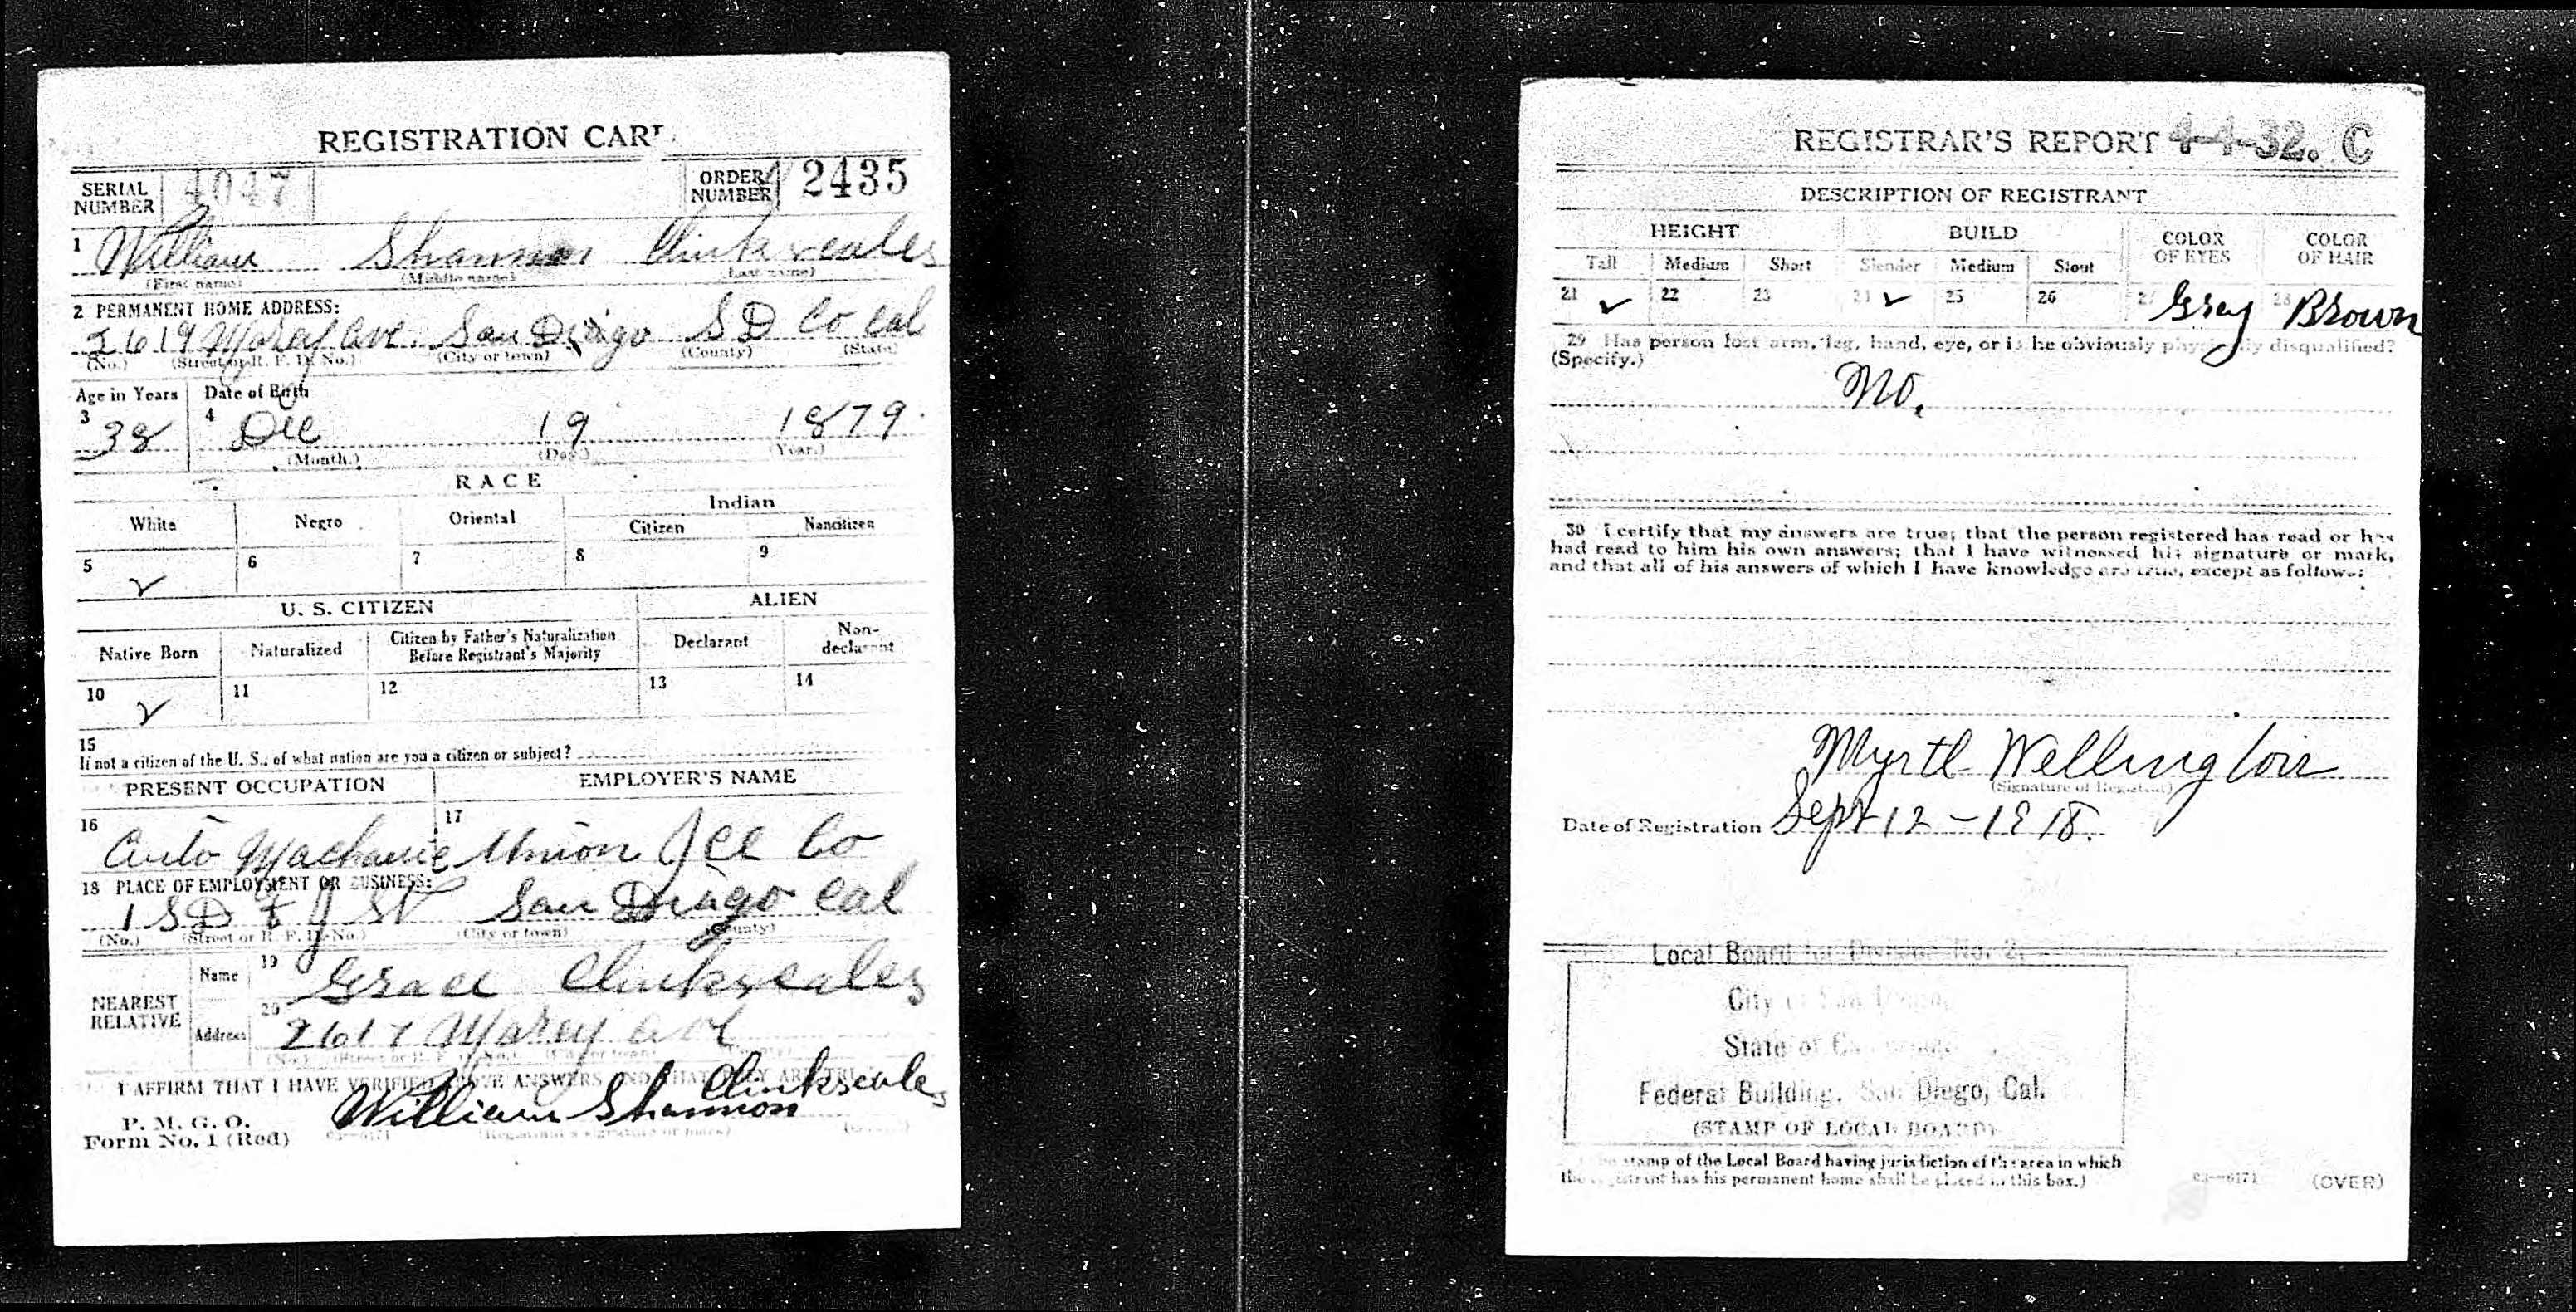 REGISTRATION CARD
SERIAL NUMBER 4047 ORDER NUMBER 2435
1 William Shannon Clinkscales
(First name) (Middle name) (Last name)
2 PERMANENT HOME ADDRESS:
2619 Marcy Ave. San Diago SD Co Cal
(No.) (Street or R. F. D. No.) (City or town) (County) (State)
Age in Years Date of Birth
3 38 4 Dec 19 1879
(Month.) (Day.) (Year.)
RACE
White Negro Oriental Indian
Citizen Noncitizen
5 ✓ 6 7 8 9
U. S. CITIZEN ALIEN
Native Born Naturalized Citizen by Father's Naturalization Before Registrant's Majority Declarant Non-declarant
10 ✓ 11 12 13 14
15
If not a citizen of the U. S., of what nation are you a citizen or subject?
PRESENT OCCUPATION EMPLOYER'S NAME
16 Auto Machanic 17 Union Ice Co
18 PLACE OF EMPLOYMENT OR BUSINESS:
1 SD & J St San Diago Cal
(No.) (Street or R. F. D. No.) (City or town) (County)
NEAREST RELATIVE
Name 19 Grace Clinkscales
Address 20 2617 Marcy Ave
(No.) (Street or R. F. D. No.) (City or town)
I AFFIRM THAT I HAVE VERIFIED ABOVE ANSWERS AND THAT THEY ARE TRUE
P. M. G. O.
Form No. 1 (Red) 03—6171 William Shannon Clinkscales
(Registrant's signature or mark)
REGISTRAR'S REPORT 4-4-32. C
DESCRIPTION OF REGISTRANT
HEIGHT BUILD COLOR OF EYES COLOR OF HAIR
Tall Medium Short Slender Medium Stout
21 ✓ 22 23 24 ✓ 25 26 27 Grey 28 Brown
29 Has person lost arm, leg, hand, eye, or is he obviously physically disqualified?
(Specify.)
No.
30 I certify that my answers are true; that the person registered has read or has
had read to him his own answers; that I have witnessed his signature or mark,
and that all of his answers of which I have knowledge are true, except as follows:
Myrtl Wellington
(Signature of Registrar)
Date of Registration Sept 12 - 1918.
Local Board for Division No. 2,
City of San Diego,
State of California
Federal Building, San Diego, Cal.
(STAMP OF LOCAL BOARD)
(The stamp of the Local Board having jurisdiction of the area in which
the registrant has his permanent home shall be placed in this box.)
03—6171 (OVER)